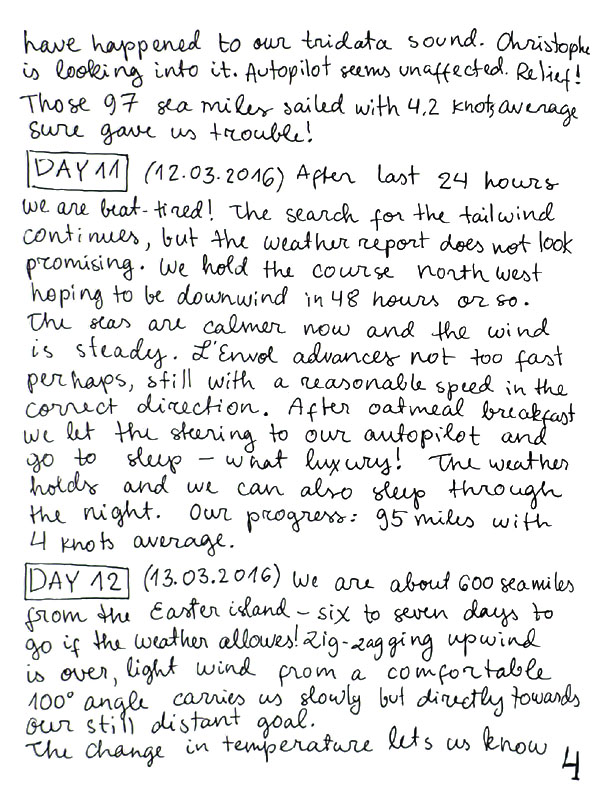 have happened to our tridata sound. Christophe
is looking into it. Autopilot seems unaffected. Relief!
Those 97 sea miles sailed with 4,2 knots average
sure gave us trouble!
DAY 11 (12.03.2016) After last 24 hours
we are beat-tired! The search for the tailwind
continues, but the weather report does not look
promising. We hold the course north west
hoping to be downwind in 48 hours or so.
The seas are calmer now and the wind
is steady. L'Envol advances not too fast
perhaps, still with a reasonable speed in the
correct direction. After oatmeal breakfast
we let the steering to our autopilot and
go to sleep – what luxury! The weather
holds and we can also sleep through
the night. Our progress: 95 miles with
4 knots average.
DAY 12 (13.03.2016) We are about 600 seamiles
from the Easter island – six to seven days to
go if the weather allowes! Zig-zagging upwind
is over, light wind from a comfortable
100° angle carries us slowly but directly towards
our still distant goal.
The change in temperature lets us know
4